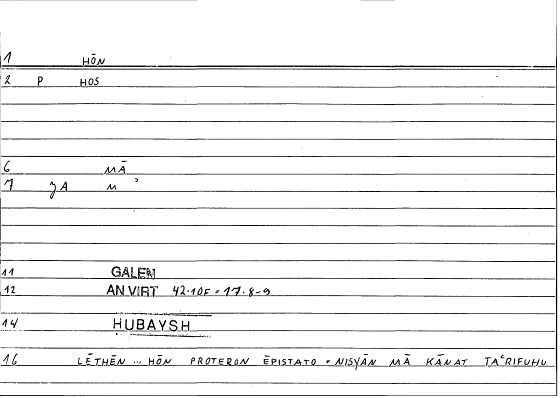 1 HŌN
2 P HOS
6 MĀ
7 M
11 GALEN
12 AN VIRT 42.10F = 17.8-9
14 HUBAYSH
16 LĒTHĒN ... HŌN PROTERON ĒPISTATO = NISYĀN MĀ KĀNAT TAʿRIFUHU